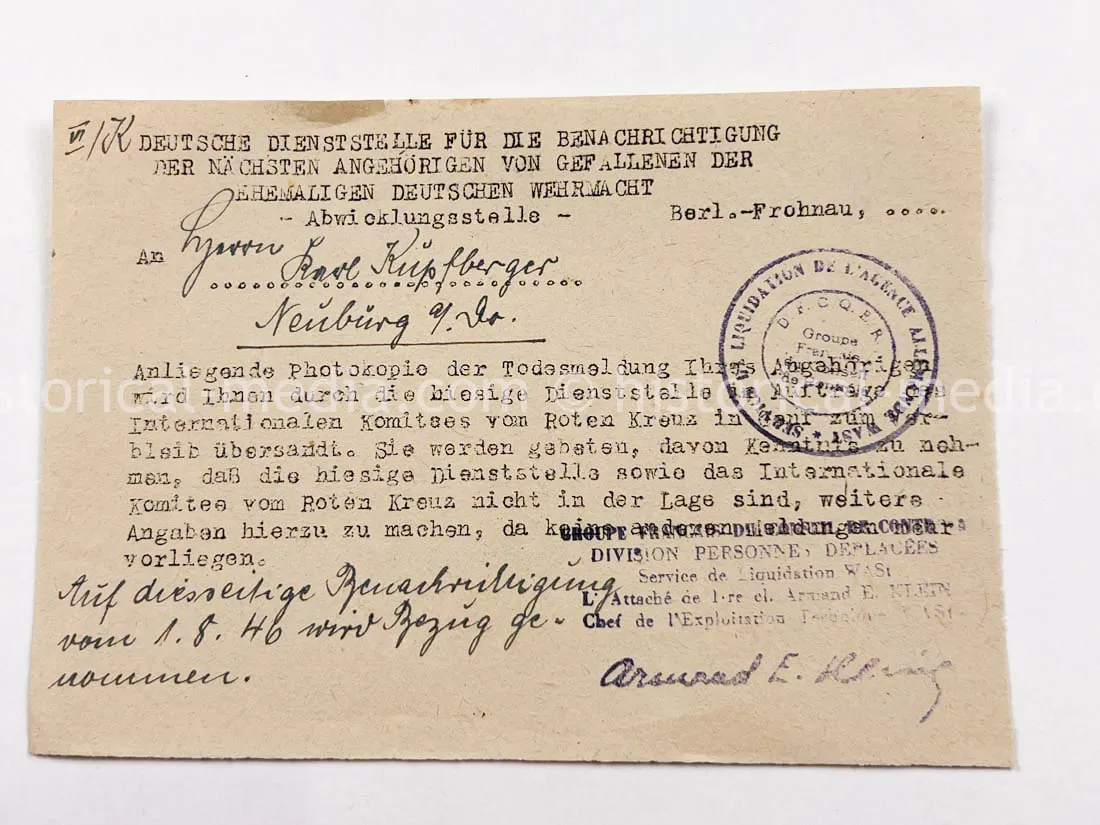 VI/K DEUTSCHE DIENSTSTELLE FÜR DIE BENACHRICHTIGUNG
DER NÄCHSTEN ANGEHÖRIGEN VON GEFALLENEN DER
EHEMALIGEN DEUTSCHEN WEHRMACHT
- Abwicklungsstelle - Berl.-Frohnau, ....
An Herrn
Karl Kupfberger
Neuburg a/Do.
SERVICE DE LIQUIDATION DE L'AGENCE ALLEMANDE WAST *
D.F.C.Q.E.R.
Groupe
Français
Anliegende Photokopie der Todesmeldung Ihres Angehörigen
wird Ihnen durch die hiesige Dienststelle im Auftrage des
Internationalen Komitees vom Roten Kreuz in Genf zum Ver-
bleib übersandt. Sie werden gebeten, davon Kenntnis zu neh-
men, daß die hiesige Dienststelle sowie das Internationale
Komitee vom Roten Kreuz nicht in der Lage sind, weitere
Angaben hierzu zu machen, da keine anderen Meldungen mehr
vorliegen.
GROUPE FRANÇAIS DU CONSEIL DE CONTROLE
DIVISION PERSONNES DEPLACÉES
Service de Liquidation WASt
L'Attaché de 1-re cl. Armand E. KLEIN
Chef de l'Exploitation Technique WASt
Auf diesseitige Benachrichtigung
vom 1.8.46 wird Bezug ge-
nommen.
Armand E. Klein
historical-media.com © historical-media.com